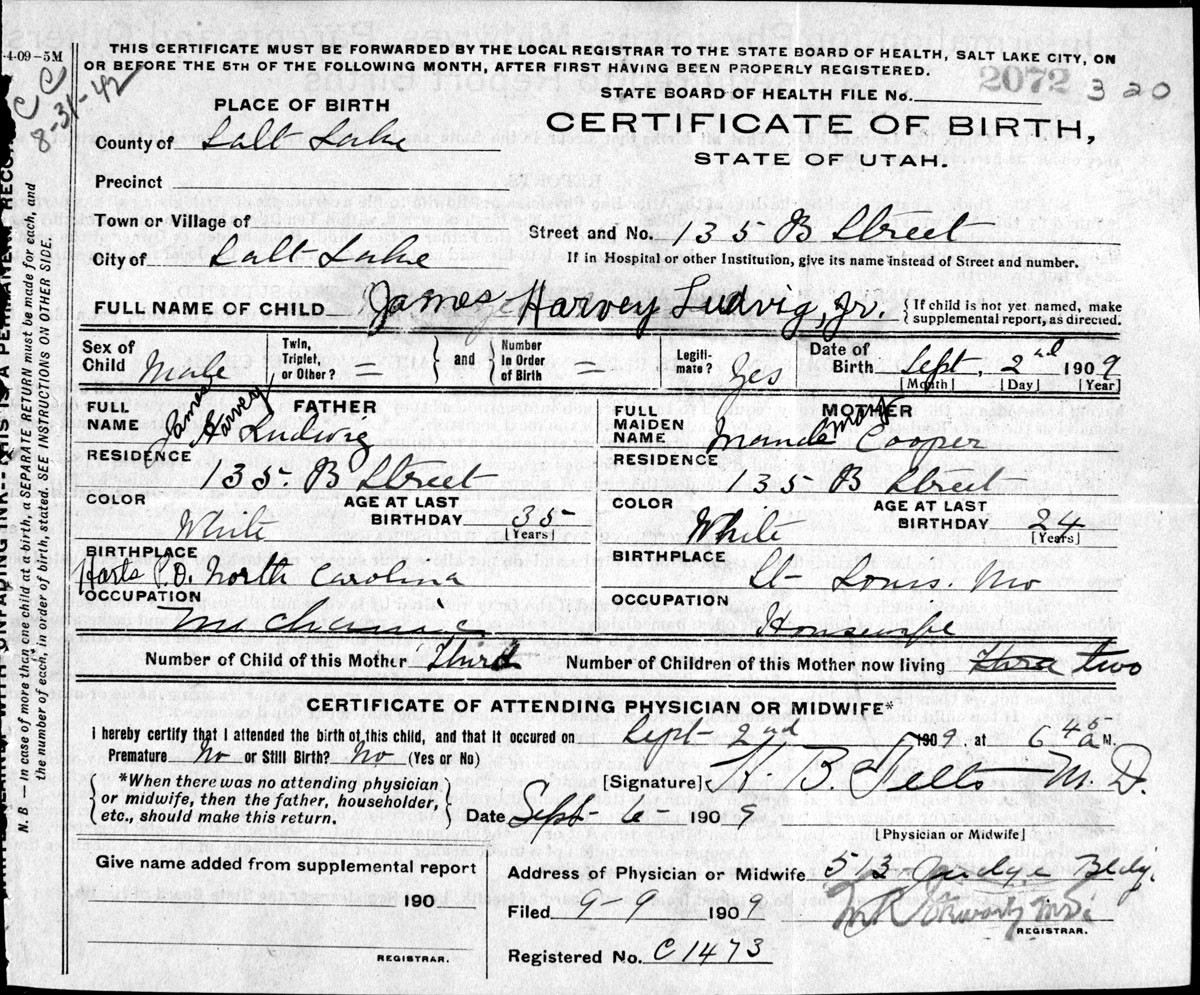 -4-09-5M
THIS CERTIFICATE MUST BE FORWARDED BY THE LOCAL REGISTRAR TO THE STATE BOARD OF HEALTH, SALT LAKE CITY, ON
OR BEFORE THE 5TH OF THE FOLLOWING MONTH, AFTER FIRST HAVING BEEN PROPERLY REGISTERED.
CC
8-31-42
STATE BOARD OF HEALTH FILE No. 2072 320
PLACE OF BIRTH
CERTIFICATE OF BIRTH,
STATE OF UTAH.
County of Salt Lake
Precinct
Town or Village of
Street and No. 135 B Street
City of Salt Lake
If in Hospital or other Institution, give its name instead of Street and number.
FULL NAME OF CHILD James Harvey Ludvig, Jr. { If child is not yet named, make supplemental report, as directed.
Sex of Child Male Twin, Triplet, or Other? = and Number in Order of Birth = Legiti-mate? Yes Date of Birth Sept. 2nd 1909
[Month] [Day] [Year]
FATHER
FULL NAME James Harvey Ludwig
RESIDENCE
135 B Street
COLOR White AGE AT LAST BIRTHDAY 35 [Years]
BIRTHPLACE
Harts P.O. North Carolina
OCCUPATION
Mechanic
MOTHER
FULL MAIDEN NAME Cooper
RESIDENCE
135 B Street
COLOR White AGE AT LAST BIRTHDAY 24 [Years]
BIRTHPLACE
St Louis. Mo
OCCUPATION
Housewife
Number of Child of this Mother Third Number of Children of this Mother now living three two
CERTIFICATE OF ATTENDING PHYSICIAN OR MIDWIFE*
I hereby certify that I attended the birth of this child, and that it occured on Sept 2nd 1909, at 6 45 a M.
Premature No or Still Birth? No (Yes or No)
*When there was no attending physician
or midwife, then the father, householder,
etc., should make this return.
[Signature] B. M. D.
Date Sept 6 1909
[Physician or Midwife]
Give name added from supplemental report
190
REGISTRAR.
Address of Physician or Midwife 513 Judge Bldg.
Filed 9 9 1909
REGISTRAR.
Registered No. C1473
N. B — In case of more than one child at a birth, a SEPARATE RETURN must be made for each, and
the number of each, in order of birth, stated. SEE INSTRUCTIONS ON OTHER SIDE.
WITH UNFADING INK--THIS IS A PERMANENT RECO